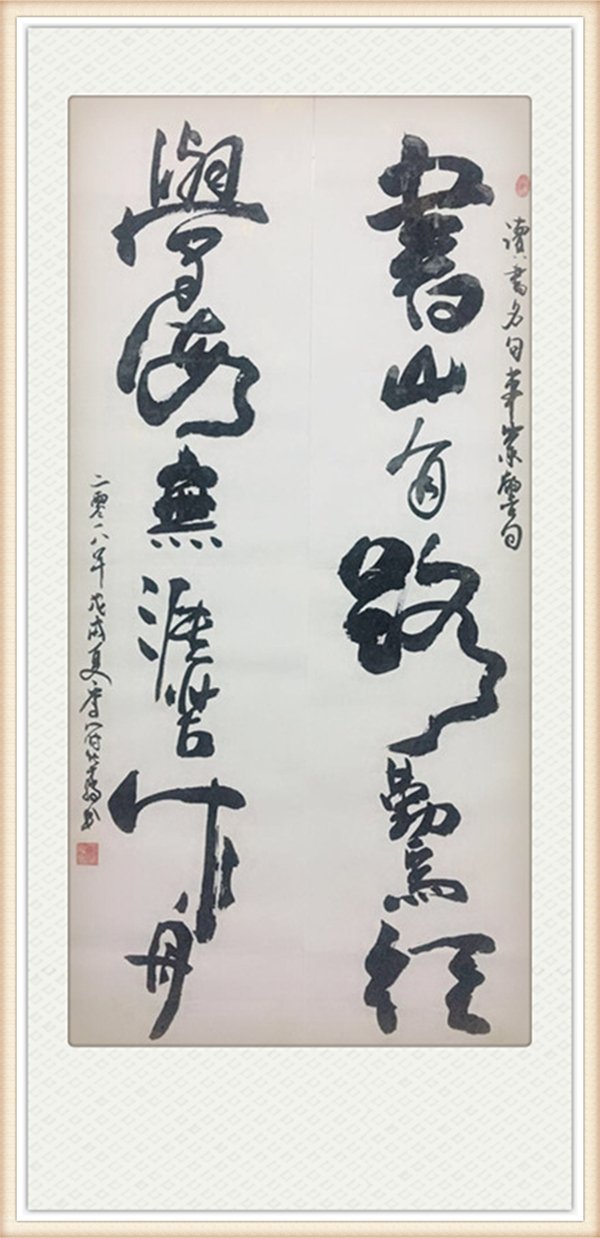 讀書名句筆業警句
書山有路勤為徑
學海無涯苦作舟
二零一八年戊戌夏